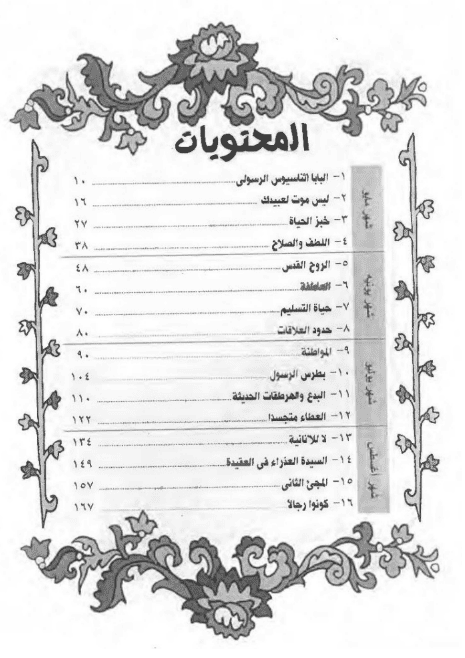 المحتويات
شهر مايو
١- البابا اثناسيوس الرسولى ١٠
٢- ليس موت لعبيدك ١٦
٣- خبز الحياة ٢٧
٤- اللطف والصلاح ٣٨
شهر يونيه
٥- الروح القدس ٤٨
٦- العاطفة ٦٠
٧- حياة التسليم ٧٠
٨- حدود العلاقات ٨٠
شهر يوليو
٩- المواطنة ٩٠
١٠- بطرس الرسول ١٠٤
١١- البدع والهرطقات الحديثة ١١٠
١٢- العطاء متجسدا ١٢٢
شهر أغسطس
١٣- لا للأنانية ١٣٤
١٤- السيدة العذراء فى العقيدة ١٤٩
١٥- المجئ الثانى ١٥٧
١٦- كونوا رجالاً ١٦٧